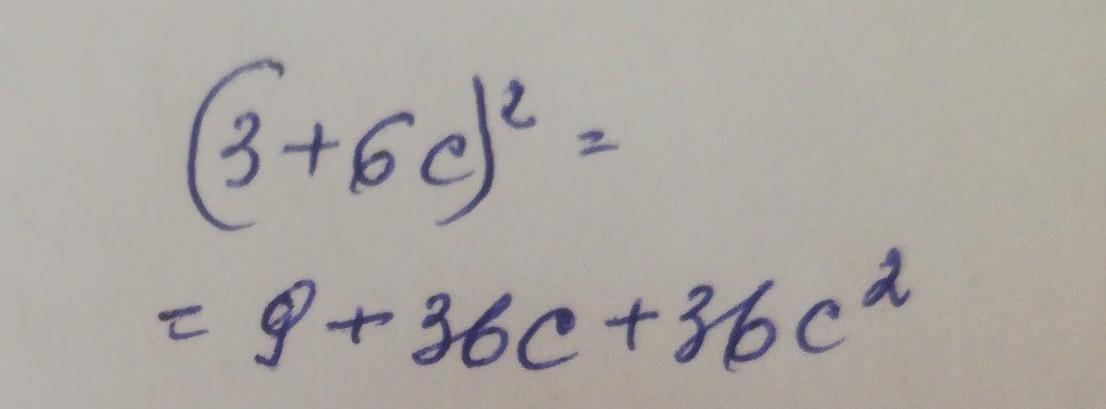 (3+6c)² =
= 9+36c+36c²